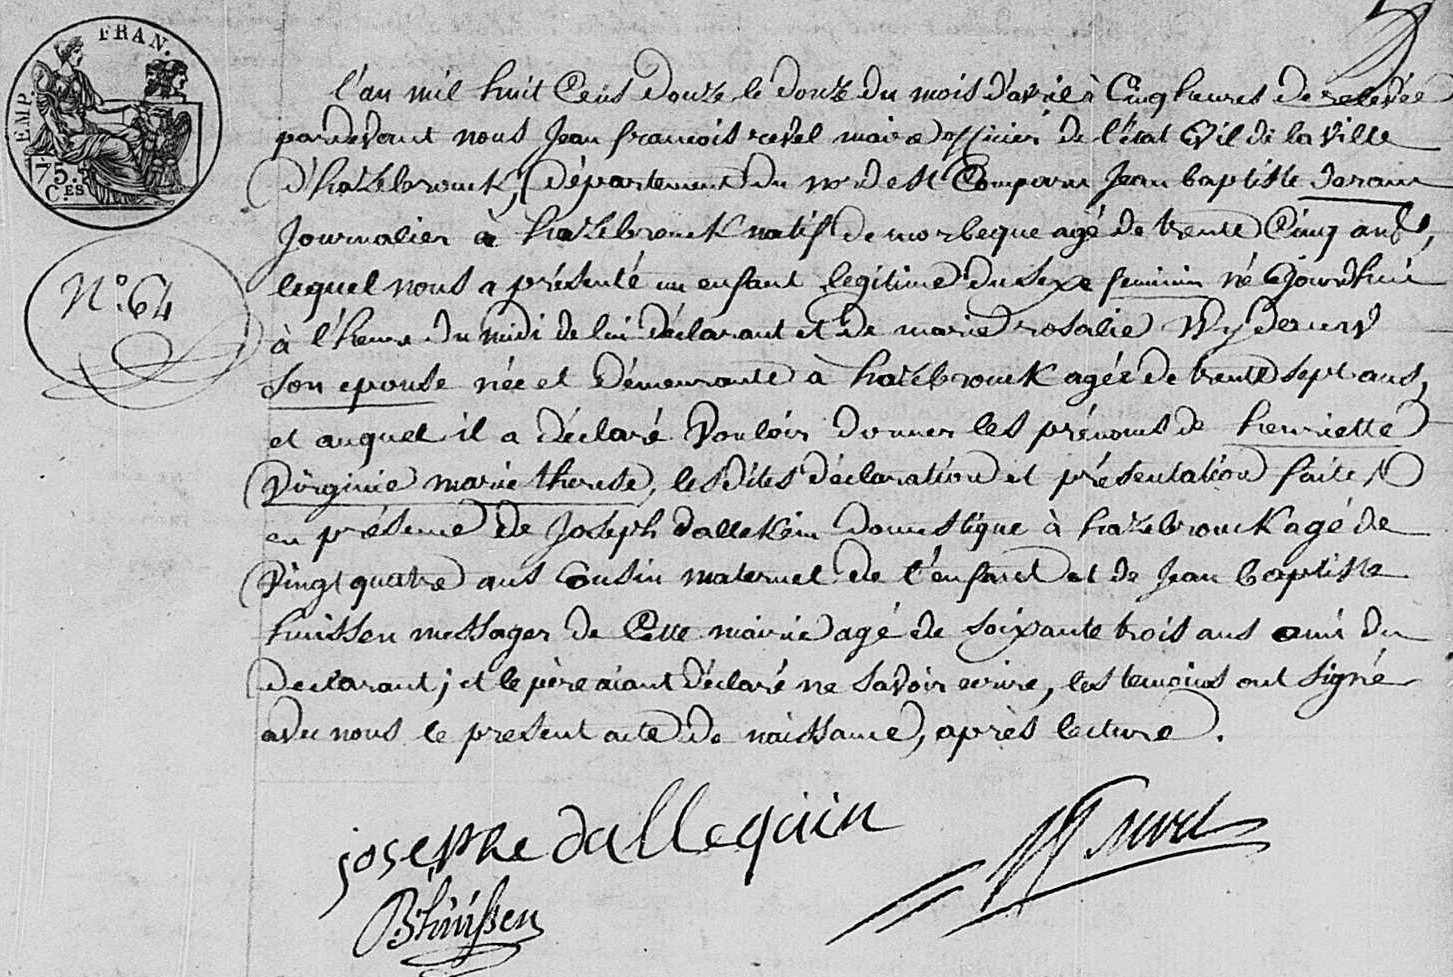 EMP. FRAN.
75.
C.ES
N.° 64
l'an mil huit Cens douze le douze du mois d'avril à Cinq heures de relevée
pardevant nous Jean francois revel maire officier de l'état Civil de la ville
d'hazebrouck, département du nord est Comparu Jean baptiste
Journalier à hazebrouck natif de morbeque agé de trente Cinq ans,
lequel nous a présenté un enfant legitime du sexe feminin né cejourdhui
à l'heure du midi de lui déclarant et de marie rosalie
son epouse née et démeurante à hazebrouck agée de trente sept ans,
et auquel il a déclaré vouloir donner les prénoms de henriette
Virginie marie therese, les dites déclaration et présentation faites
en présence de Joseph dallekein domestique à hazebrouck agé de
vingt quatre ans Cousin maternel de l'enfant et de Jean baptiste
huissen messager de Cette mairie agé de soixante trois ans ami du
declarant; et le père aiant déclaré ne savoir ecrire, les temoins ont signé
avec nous le present acte de naissance, après lecture.
josephe dallequin
Bhuissen
revel